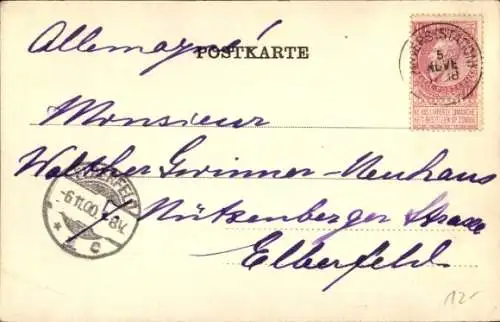 Allemagne
POSTKARTE
ANVERS (STATION)
5
NOVE
18
NE PAS LIVRER LE DIMANCHE
NIET BESTELLEN OP ZONDAG
Monsieur
Walther Gerinner-Neuhaus
ELBERFELD
-6.11.00. 7-8V.
* c *
Nützenberger Strasse
Elberfeld.
12.-